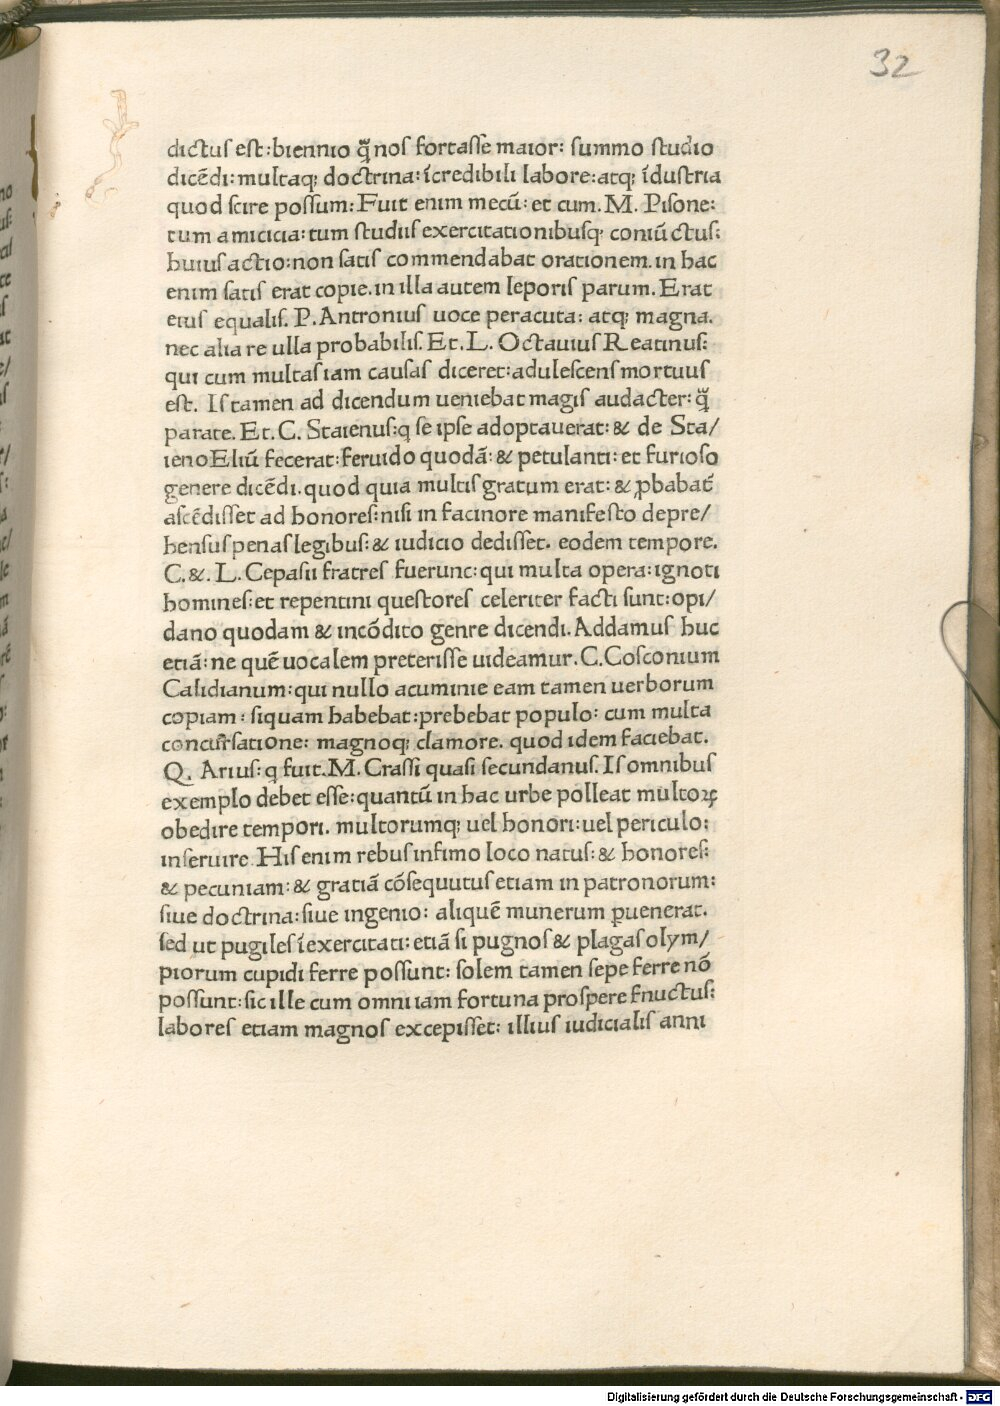 32
dictuſ eſt: biennio q̄̈ noſ fortaſſe maior: ſummo ſtudio
dicēdi: multaq; doctrina: ı̄credibili labore: atq; ı̄duſtria
quod ſcire poſſum: Fuit enim mecū: et cum. M. Piſone:
tum amicicia: tum ſtudiiſ exercitationibuſq; coniūctuſ:
huiuſ actio: non ſatiſ commendabat orationem. in hac
enim ſatiſ erat copie. in illa autem leporiſ parum. Erat
eiuſ equaliſ. P. Antroniuſ uoce peracuta: atq; magna.
nec alia re ulla probabiliſ. Et. L. Octauiuſ Reatinuſ:
qui cum multaſ iam cauſaſ diceret: aduleſcenſ mortuuſ
eſt. Iſ tamen ad dicendum ueniebat magiſ audacter: q̄̈
parate. Et. C. Staienuſ: q ſe ipſe adoptauerat: & de Sta/
ieno Eliū fecerat: feruido quodā: & petulanti: et furioſo
genere dicēdi. quod quia multiſ gratum erat: & ꝓbabat̄
aſcēdiſſet ad honoreſ: niſi in facinore manifeſto depre/
henſuſ penaſ legibuſ: & iudicio dediſſet. eodem tempore.
C. &. L. Cepaſii fratreſ fuerunt: qui multa opera: ignoti
homineſ: et repentini queſtoreſ celeriter facti ſunt: opi/
dano quodam & incōdito genre dicendi. Addamuſ huc
etiā: ne quē uocalem preteriſſe uideamur. C. Coſconium
Calidianum: qui nullo acuminie eam tamen uerborum
copiam: ſiquam habebat: prebebat populo: cum multa
concurſatione: magnoq; clamore. quod idem faciebat.
Q. Ariuſ: q fuit. M. Craſſi quaſi ſecundanuſ. Iſ omnibuſ
exemplo debet eſſe: quantū in hac urbe polleat multoꝝ
obedire tempori. multorumq; uel honori: uel periculo:
inſeruire. Hiſ enim rebuſ infimo loco natuſ: & honoreſ:
& pecuniam: & gratiā cōſequutuſ etiam in patronorum:
ſiue doctrina: ſiue ingenio: aliquē munerum ꝑuenerat.
ſed ut pugileſ ı̄exercitati: etiā ſi pugnoſ & plagaſ olym/
piorum cupidi ferre poſſunt: ſolem tamen ſepe ferre nō
poſſunt: ſic ille cum omni iam fortuna proſpere fnuctuſ:
laboreſ etiam magnoſ excepiſſet: illiuſ iudicialiſ anni
Digitalisierung gefördert durch die Deutsche Forschungsgemeinschaft - DFG